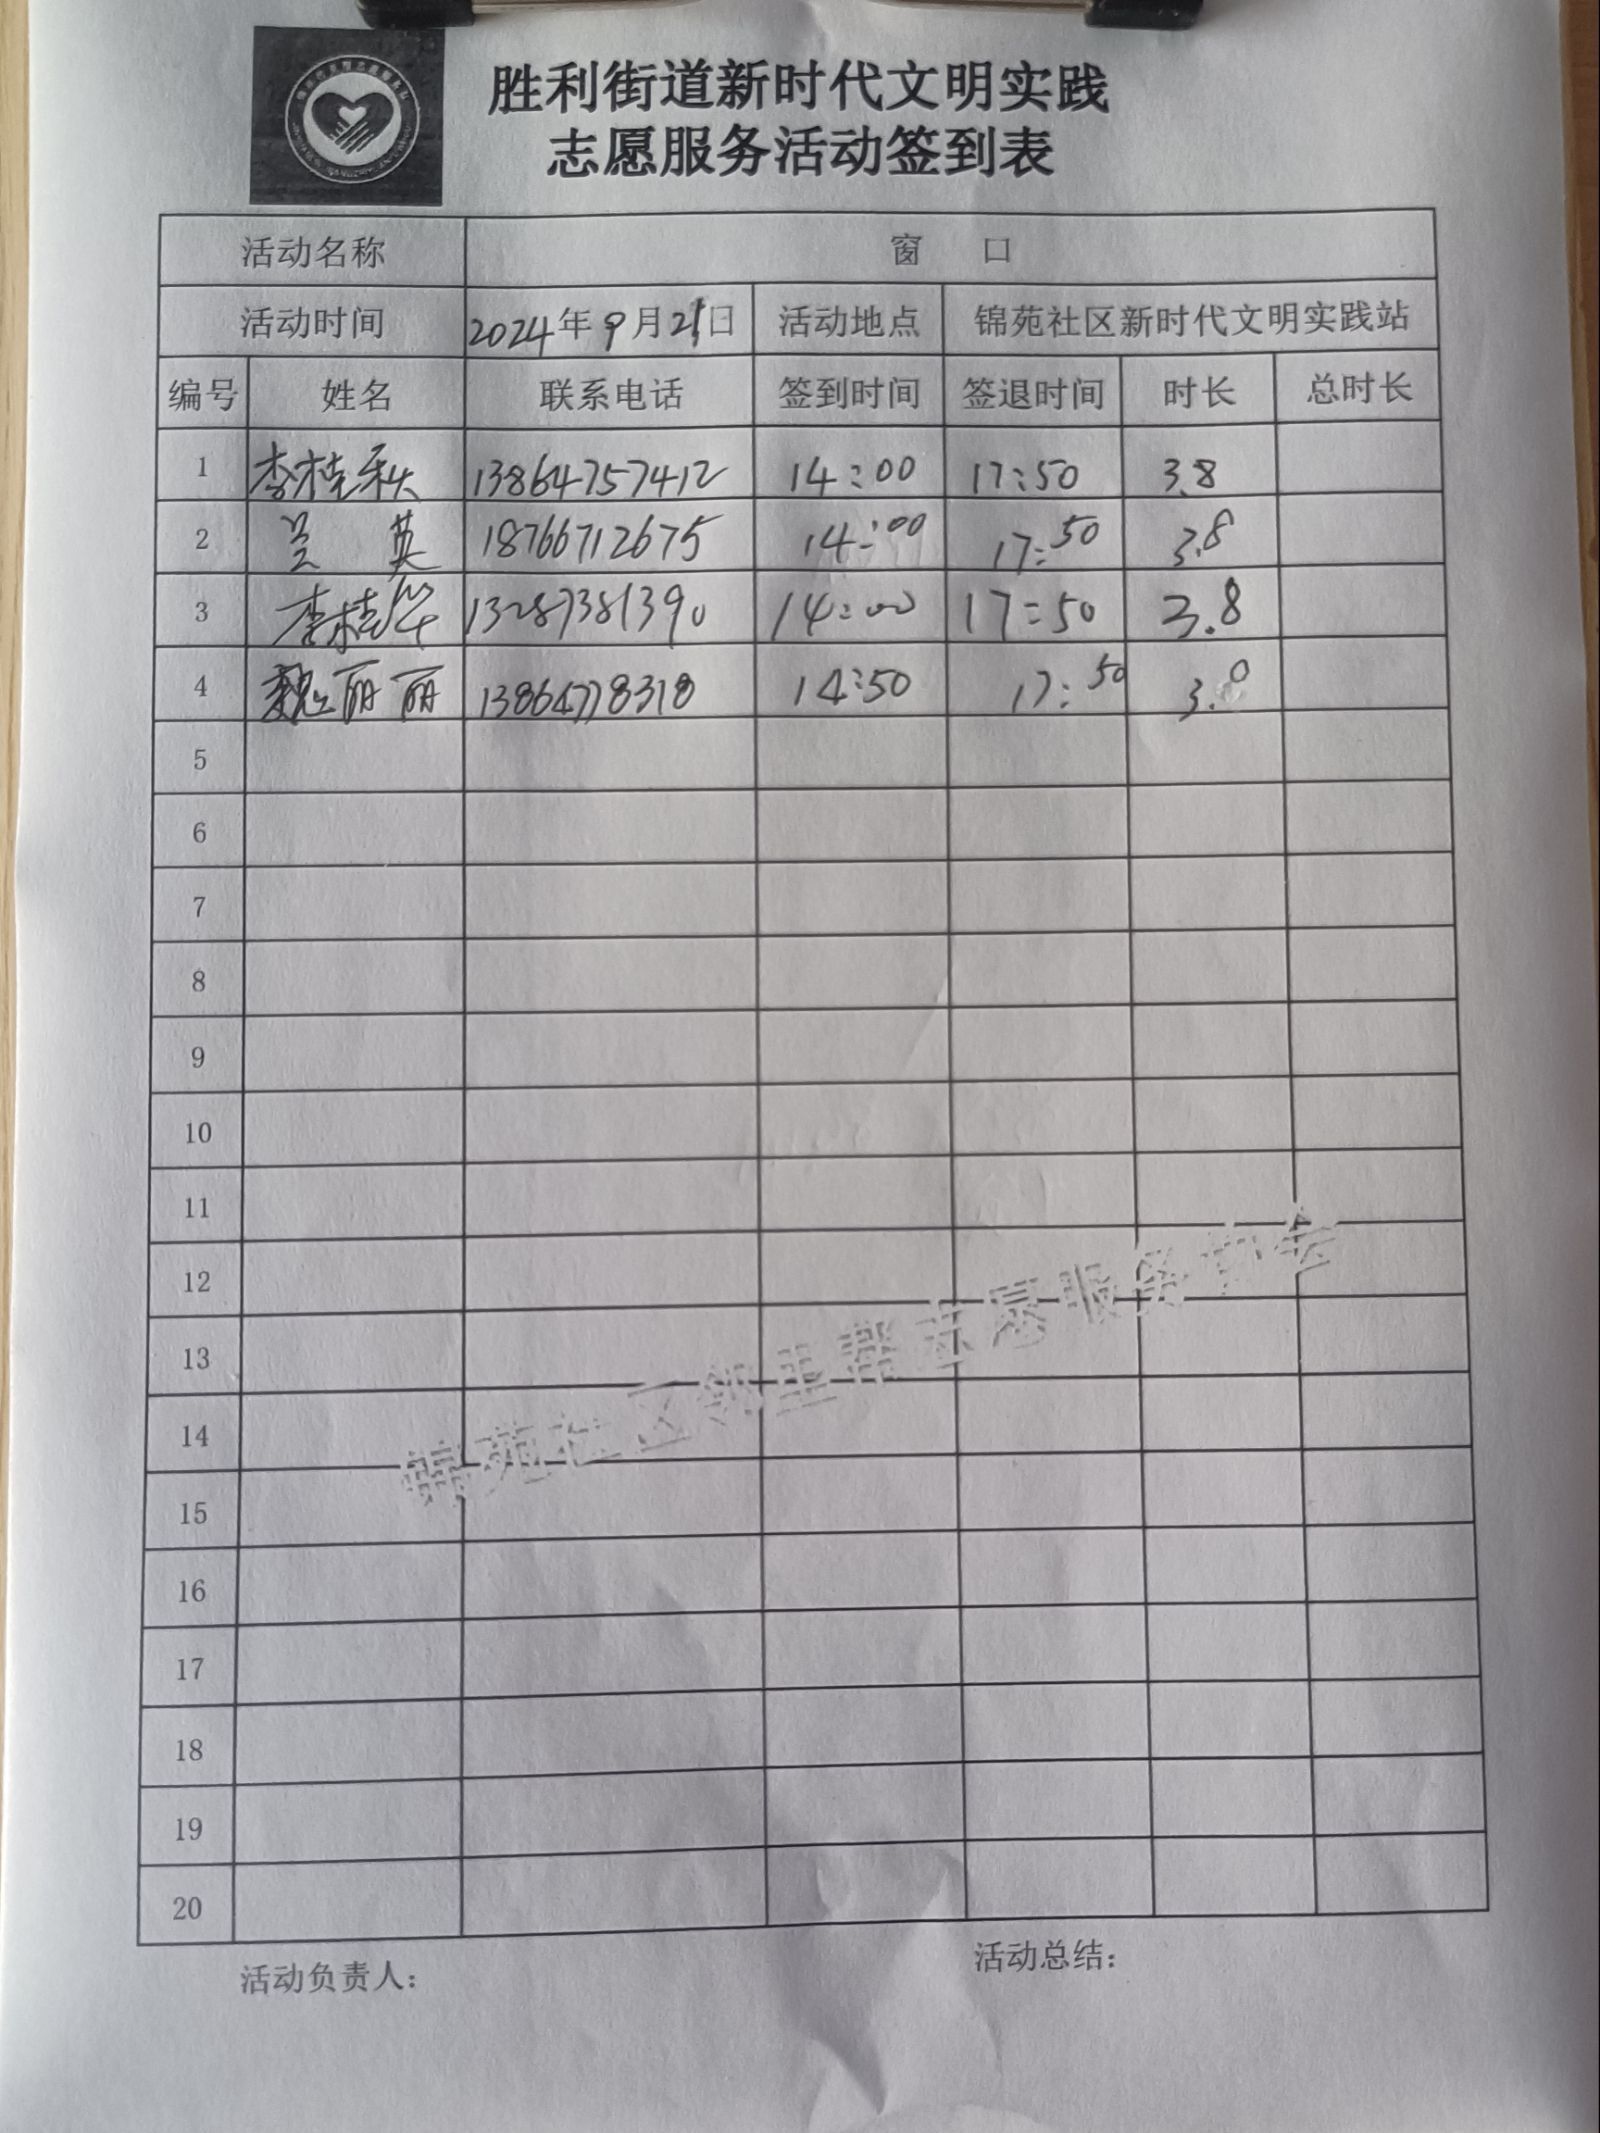 胜利街道新时代文明实践
志愿服务活动签到表
活动名称 窗 口
活动时间 2024年9月21日 活动地点 锦苑社区新时代文明实践站
编号 姓名 联系电话 签到时间 签退时间 时长 总时长
1 李桂秋 13864757412 14:00 17:50 3.8
2 吴英 18766712675 14:00 17:50 3.8
3 李桂华 13287381390 14:00 17:50 3.8
4 魏丽丽 13864778318 14:50 17:50 3.0
5
6
7
8
9
10
11
12
13
14
15
16
17
18
19
20
锦苑社区邻里帮志愿服务协会
活动负责人： 活动总结：